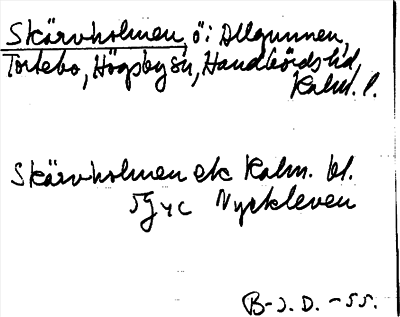 Skärvholmen, ö i Allgunnen,
Tortebo, Högsby sn, Handbörds hd,
Kalm. l.
Skärvholmen ek Kalm. bl.
5G 4c Nyckleven
B-J. D. -55.